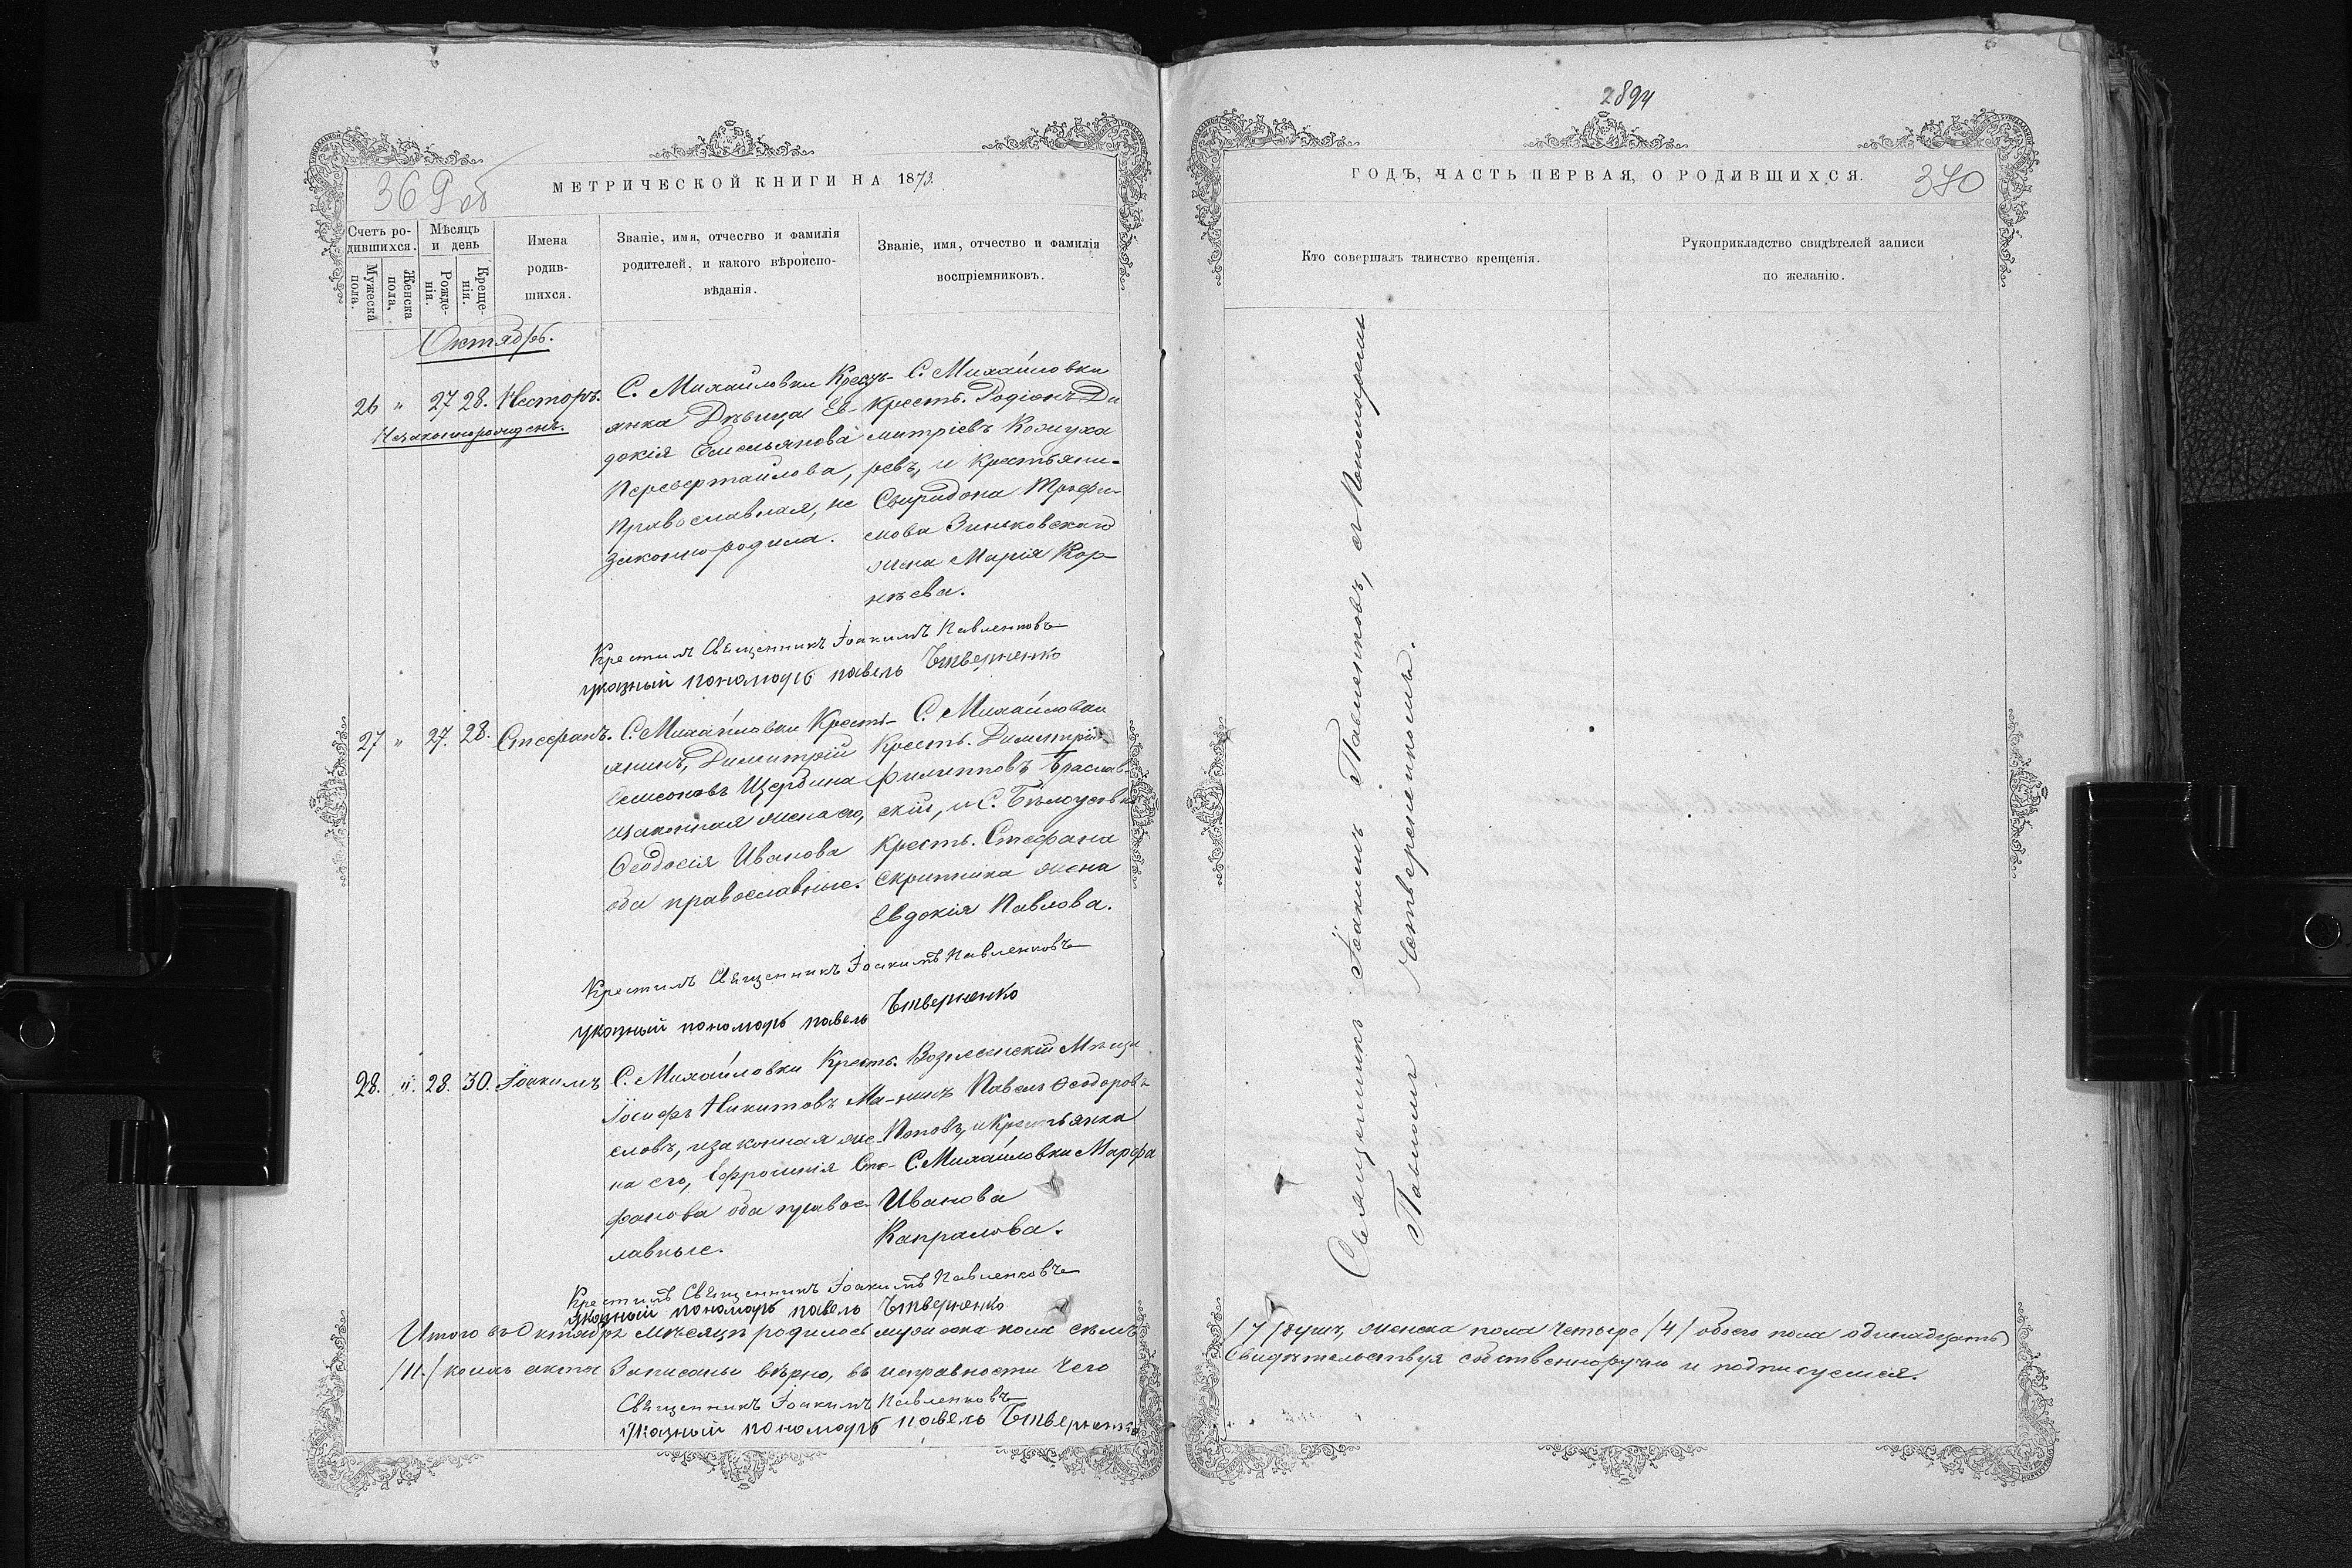 369 об
МЕТРИЧЕСКОЙ КНИГИ НА 1873.
Счетъ ро-
дившихся.
Мужеска
пола.
Женска
пола.
Мѣсяцъ
и день
Рожде-
нія.
Креще-
нія.
Имена
родив-
шихся.
Званіе, имя, отчество и фамилія
родителей, и какого вѣроиспо-
вѣданія.
Званіе, имя, отчество и фамилія
воспріемниковъ.
Октябрь.
26 " 27 28. Несторъ.
Незаконнорожденъ.
С. Михайловки Кресть-
янка Дѣвица Ев-
докія Емельянова
Перевертайлова,
Православная, не
законно родила.
С. Михайловки
Крестъ. Родіонъ Ди
митріевъ Кожуха
ревъ, и крестьяни-
Свиридона Трофи-
мова Зинковскаго
жена Марія Кор-
нѣева.
Крестилъ Священникъ Іоакимъ Павленковъ
указный пономарь павелъ Ѣтверненко
27 " 27. 28. Стефанъ.
С. Михайловки Кресть-
янинъ, Димитрій
Семеоновъ Щербина
изаконная жена его,
Ѳеодосія Иванова
оба православные.
С. Михайловки
Крестъ. Димитрій
Филипповъ Браслав-
скій, и С. Бѣлоусовки
Крестъ. Стефана
Скрипника жена
Евдокія Павлова.
Крестилъ Священникъ Іоакимъ Павленковъ
указный пономарь павелъ Ѣтверненко
28. " 28. 30. Іоакимъ
С. Михайловки Крестъ.
Іосифъ Никитовъ Ма-
словъ, изаконная же
на его, Ефросинія Сте-
фанова оба правос-
лавные.
Вознесенскій Мѣща
нинъ Павелъ Ѳеодоровъ
Поповъ, и Крестьянка
С. Михайловки Марфа
Иванова
Капралова.
Крестилъ Священникъ Іоакимъ Павленковъ
указный пономарь павелъ Ѣтверненко
Итого въ Октябрѣ мѣсяцѣ родилось мужеска пола семь
/11./ коихъ акты Записаны вѣрно, въ исправности чего
Священникъ Іоакимъ Павленковъ
указный пономарь павелъ Ѣтверненко
2894
ГОДЪ, ЧАСТЬ ПЕРВАЯ, О РОДИВШИХСЯ.
370
Кто совершалъ таинство крещенія.
Рукоприкладство свидѣтелей записи
по желанію.
Священникъ Іоакимъ Павленковъ, съ Пономаремъ
Павломъ Четверненкомъ.
/7/ душъ, женска пола четыре /4/ обоего пола одинадцать
Свидѣтельствуя собственноручно и подписуемся.